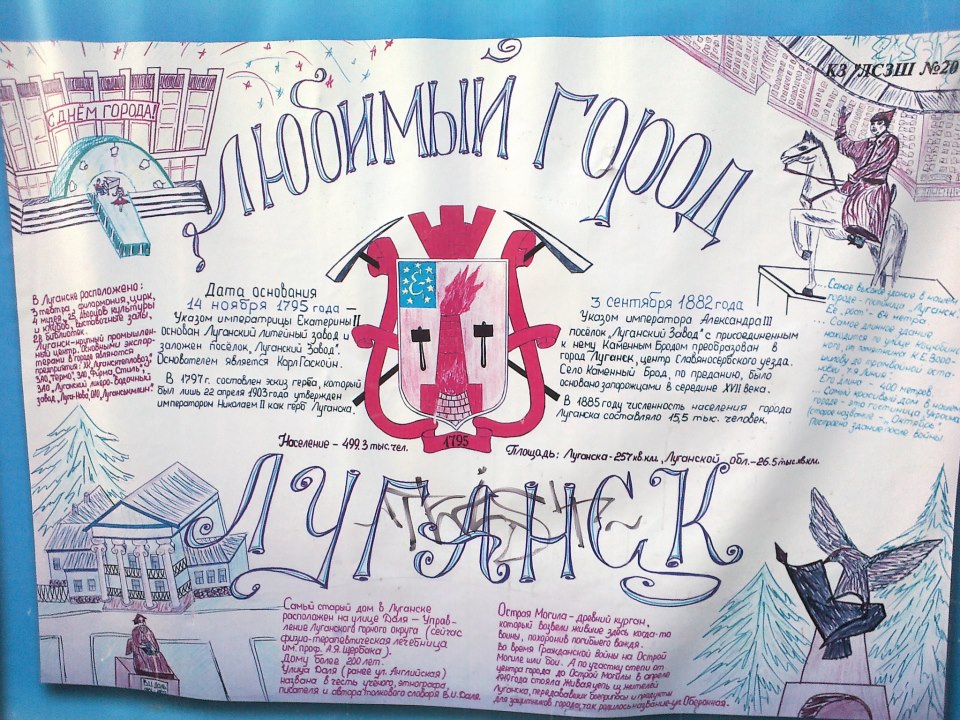 КЗ "ЛСЗШ №20
С ДНЁМ ГОРОДА!
ЛЮБИМЫЙ ГОРОД
В Луганске расположено:
3 театра, филармония, цирк,
4 музея, 25 Дворцов культуры
и клубов, выставочные залы,
22 библиотек
Луганск-крупный промышлен-
ный центр. Основными экспор-
терами в городе являются
предприятия: ХК "Лугансктепловоз",
ЗАО "Термо", ЗАО "Фирма Стиль",
ЗАО "Луганский ликёро-водочный
завод "Луга-Нова", ОАО "Луганскмлин".
Дата основания
14 ноября 1795 года –
Указом императрицы Екатерины II
основан Луганский литейный завод и
заложен посёлок "Луганский Завод".
Основателем является Карл Гаскойн.
В 1797г. составлен эскиз герба, который
был лишь 22 апреля 1903 года утвержден
императором Николаем II как герб Луганска.
1795
3 сентября 1882 года
Указом императора Александра III
посёлок "Луганский Завод" с присоединенным
к нему Каменным Бродом преобразован в
город Луганск, центр Славяносербского уезда.
Село Каменный Брод, по преданию, было
основано запорожцами в середине XVII века.
В 1885 году численность населения города
Луганска составляло 15,5 тыс. человек.
Самое высокое здание в нашем
городе - гостиница "Луганск".
Её "рост" - 64 метра
Самое длинное здание
находится по улице Оборонной
от памятника
Его длина - 400 метров.
Самый красивый дом в нашем
городе - это гостиница "Украина"
(старое название "Октябрь")
Построено здание после войны
Население – 499.3 тыс. чел.
Площадь: Луганска - 257 кв.км, Луганской обл. - 26.5 тыс.кв.км.
ЛУГАНСК
Самый старый дом в Луганске
расположен на улице Даля – Управ-
ление Луганского горного округа (сейчас
физио-терапевтическая лечебница
им. проф. А.Я. Щербака).
Дому более 200 лет.
Улица Даля (ранее ул. Английская)
названа в честь ученого, этнографа,
писателя и автора Толкового словаря В.И. Даля.
Острая Могила - древний курган,
который возвели жившие здесь когда-то
воины, похоронив погибшего вождя.
Во время Гражданской войны на Острой
Могиле шли бои. А по участку степи от
центра города до Острой Могилы в апреле
1919 года стояла Живая цепь из жителей
Луганска, передававших боеприпасы и продукты
для защитников города, так родилось название - ул. Оборонная.
В.И. ДАЛЬ